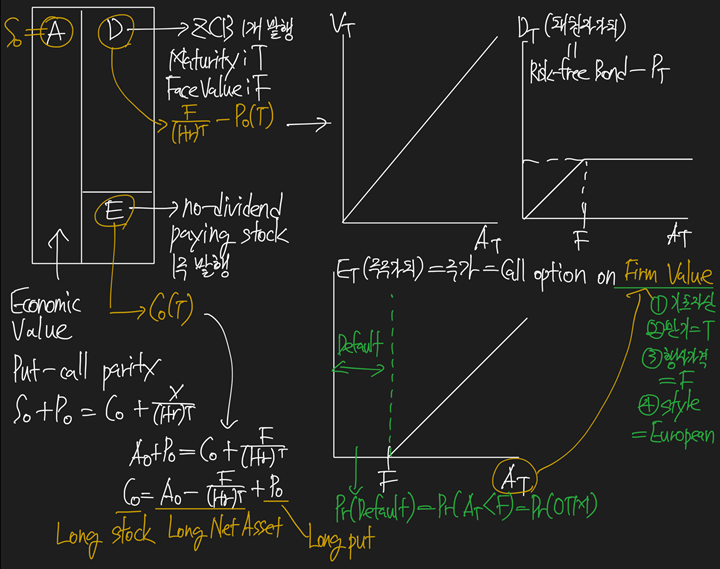 S₀ = A
D → ZCB 1개 발행
Maturity : T
Face Value : F
→ F/(1+r)^T - P₀(T) →
E → no-dividend
paying stock
1주 발행
Economic
Value
→ C₀(T)
Put-call parity
S₀ + P₀ = C₀ + X/(1+r)^T
A₀ + P₀ = C₀ + F/(1+r)^T
C₀ = A₀ - F/(1+r)^T + P₀
Long stock Long Net Asset
Long put
V_T
A_T
D_T (채권자가치)
=
Risk-free Bond - P_T
F
A_T
E_T (주주가치) = 주가 = Call option on Firm Value
① 기초자산
② 만기 = T
③ 행사가격
= F
④ style
= European
Default
F
A_T
Pr(Default) = Pr(A_T < F) = Pr(OTM)